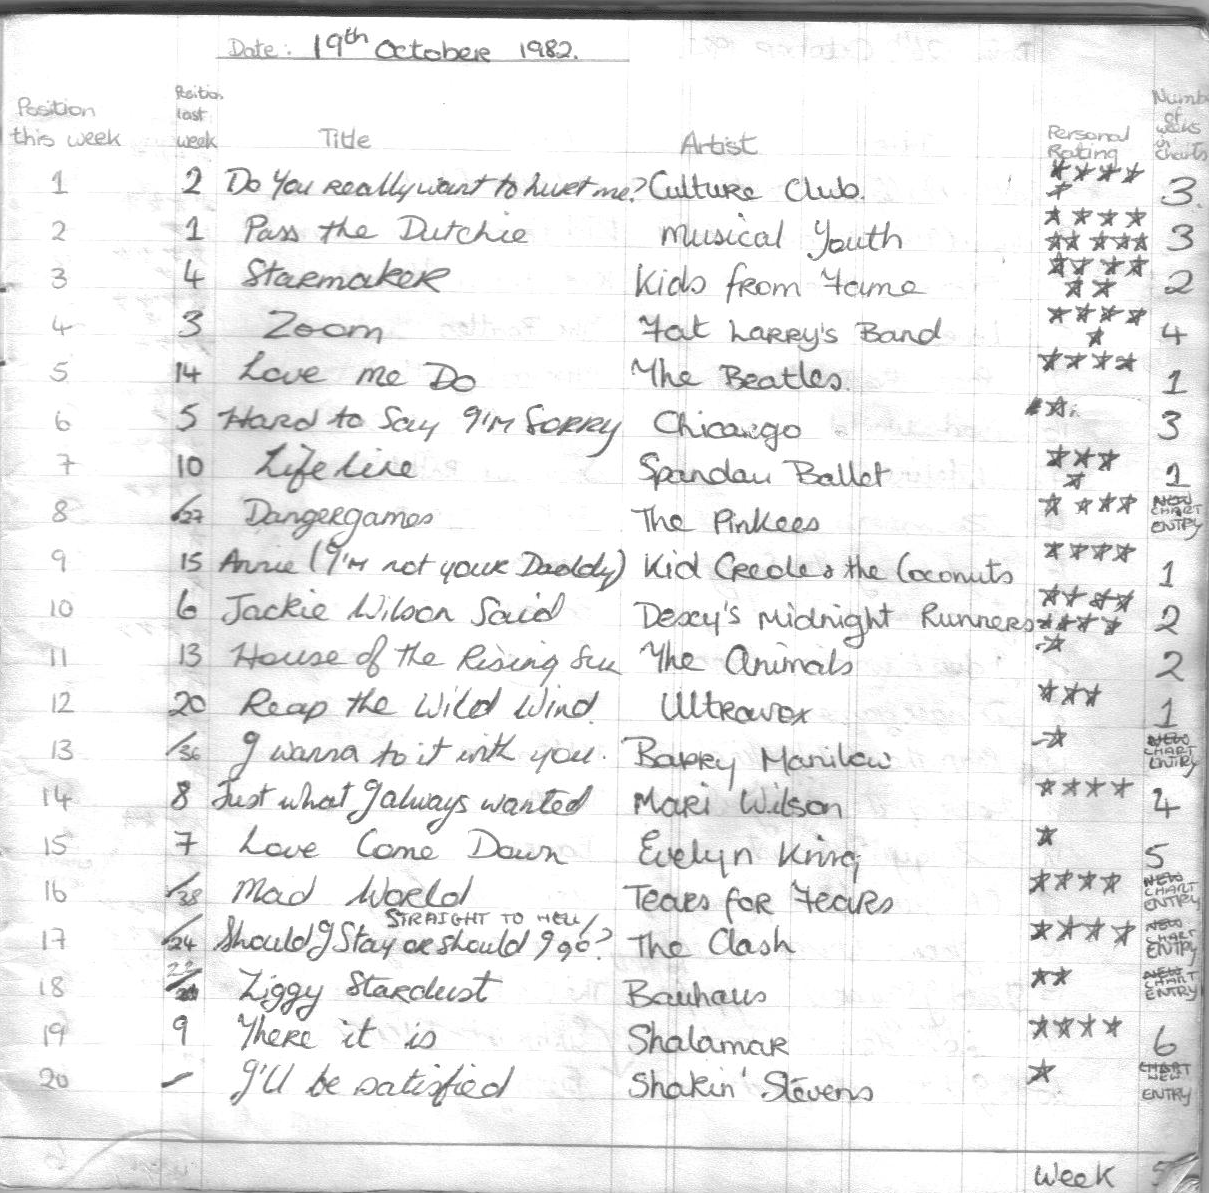 Date: 19th October 1982.
Position this week Position last week Title Artist Personal Rating Number of weeks on Charts
1 2 Do You really want to hurt me? Culture Club. ★★★★★ 3.
2 1 Pass the Dutchie Musical Youth ★★★★★★★★★ 3
3 4 Starmaker Kids from Fame ★★★★★★ 2
4 3 Zoom Fat Larry's Band ★★★★★ 4
5 14 Love me Do The Beatles. ★★★★ 1
6 5 Hard to Say I'm Sorry Chicargo ★ 3
7 10 Lifeline Spandau Ballet ★★★★ 1
8 /27 Dangergames The Pinkees ★★★★ NEW CHART ENTRY
9 15 Annie (I'm not your Daddy) Kid Creole & the Coconuts ★★★★ 1
10 6 Jackie Wilson Said Dexy's Midnight Runners ★★★★★★★★ 2
11 13 House of the Rising Sun The Animals -★ 2
12 20 Reap the Wild Wind. Ultravox ★★★ 1
13 /36 I wanna to it with you. Barry Manilow -★ NEW CHART ENTRY
14 8 Just what I always wanted Mari Wilson ★★★★ 4
15 7 Love Come Down Evelyn King ★ 5
16 /38 Mad World Tears for Fears ★★★★ NEW CHART ENTRY
STRAIGHT TO HELL/
17 /24 Should I Stay or should I go? The Clash ★★★★ NEW CHART ENTRY
18 Ziggy Stardust Bauhaus ★★ NEW CHART ENTRY
19 9 There it is Shalamar ★★★★ 6
20 - I'll be satisfied Shakin' Stevens ★ CHART NEW ENTRY
Week 5